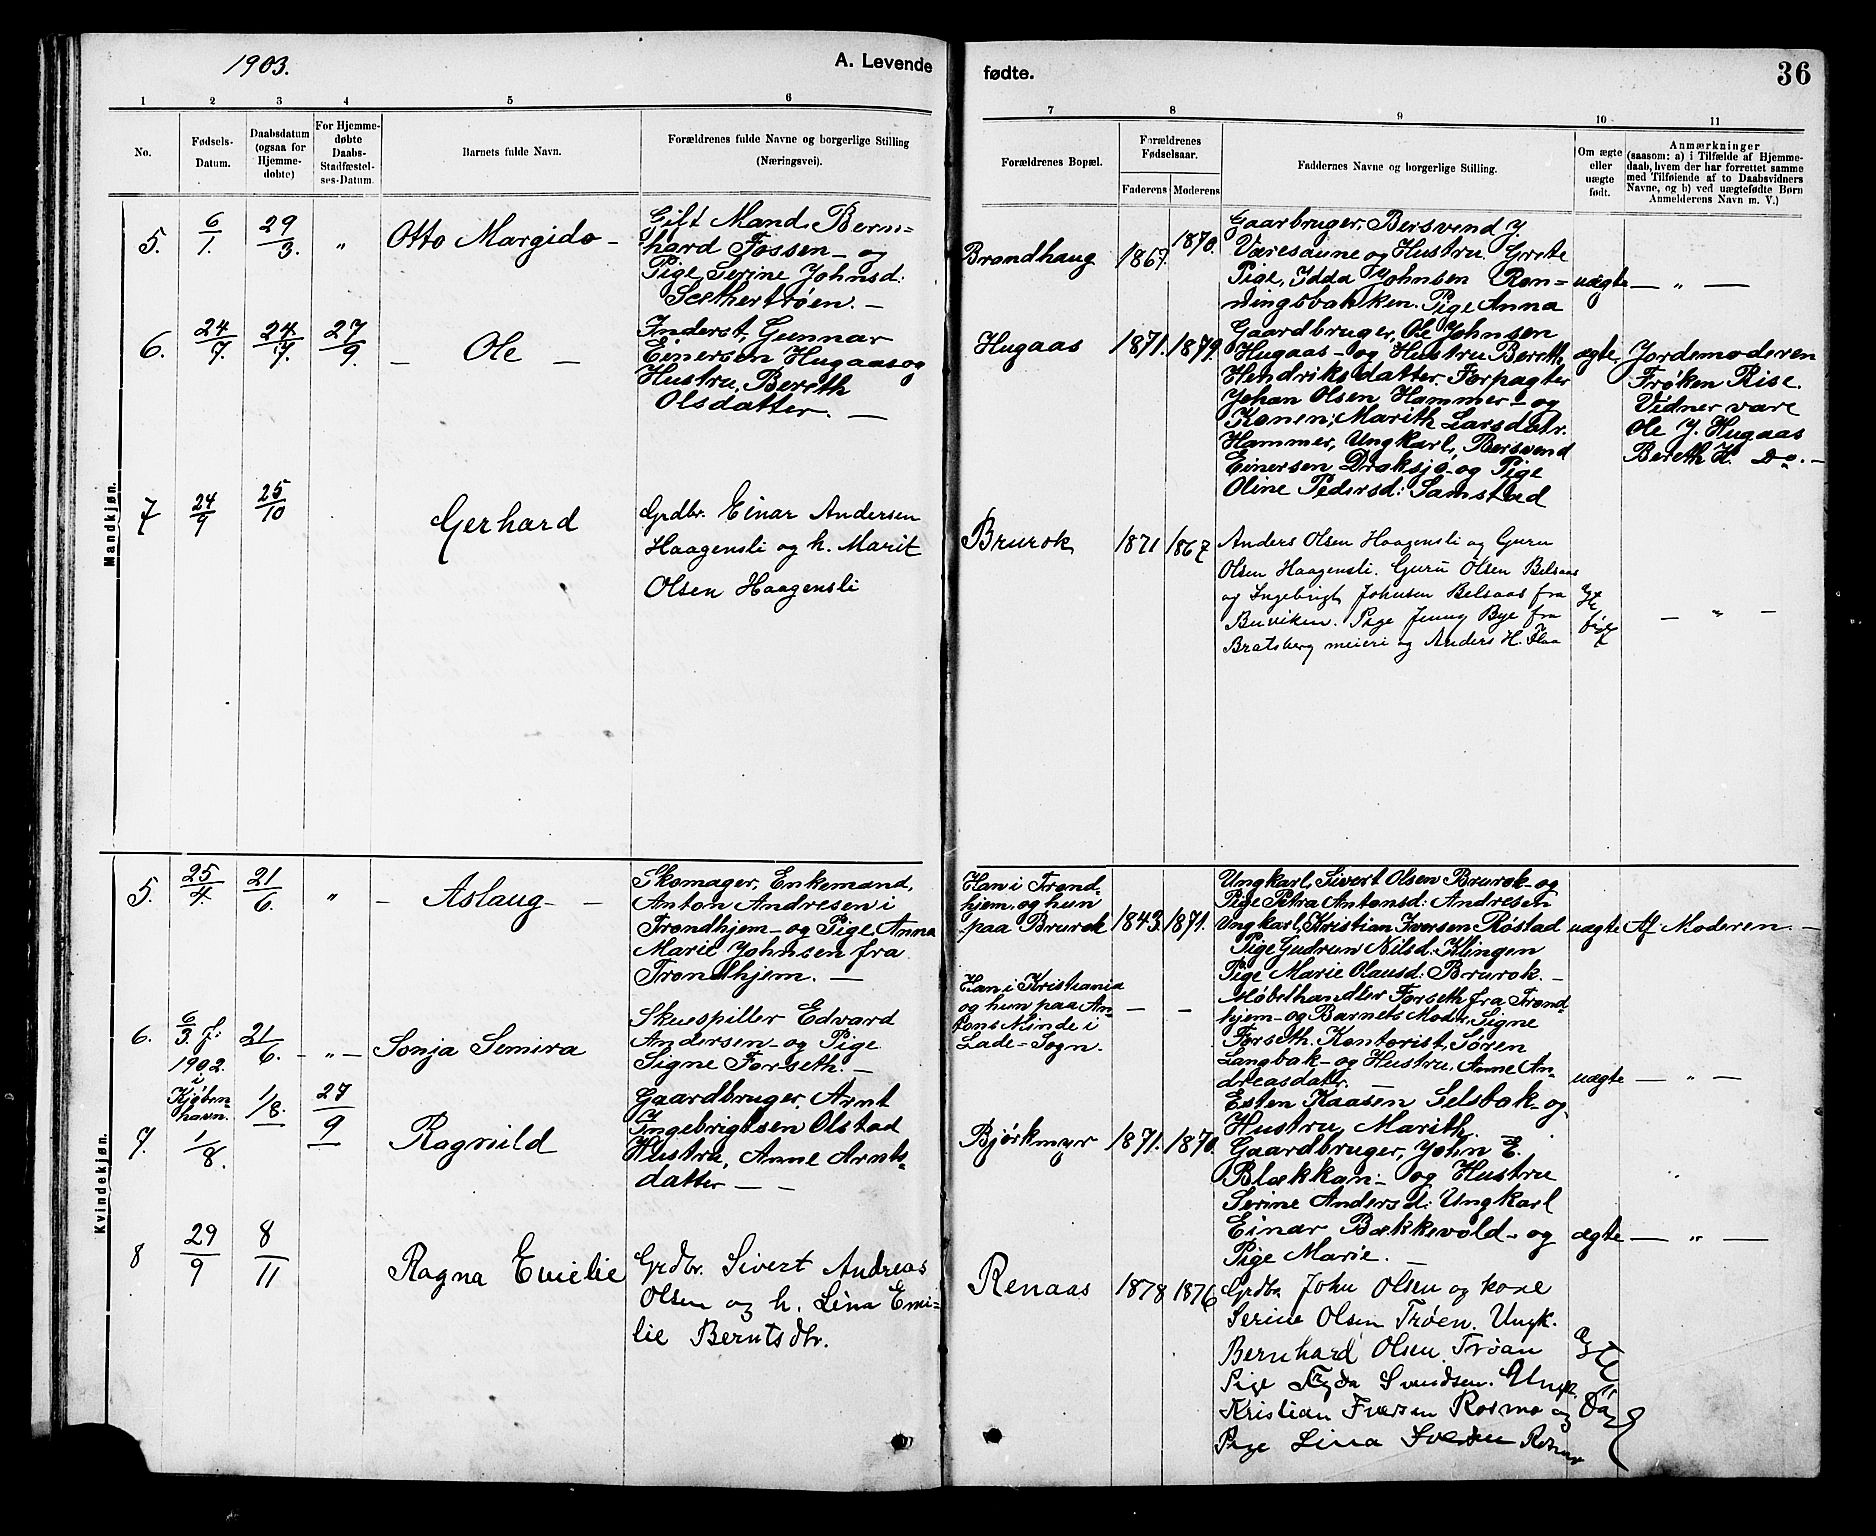 1903.
A. Levende
fødte.
36
1 2 3 4 5 6
7 8 9 10 11
No.
Fødsels-
Datum.
Daabsdatum
(ogsaa for
Hjemme-
døbte)
For Hjemme-
døbte
Daabs-
Stadfæstel-
ses-Datum.
Barnets fulde Navn.
Forældrenes fulde Navne og borgerlige Stilling
(Næringsvei).
Forældrenes Bopæl.
Forældrenes
Fødselsaar.
Faderens
Moderens
Faddernes Navne og borgerlige Stilling.
Om ægte
eller
uægte
født.
Anmærkninger
(saasom: a) i Tilfælde af Hjemme-
daab, hvem der har forrettet samme
med Tilføiende af to Daabsvidners
Navne, og b) ved uægtefødte Børn
Anmelderens Navn m. V.)
Mandkjøn.
5. 6/1. 29/3. " Otto Margido –
Gift Mand, Bern=
hard Fossen – og
Pige, Serine Johnsd:
Sæthertrøen. –
Brandhaug 1867. 1870.
Gaarbruger, Bersvend J.
Væresaune og Hustru Grete
Pige, Idda Johnsen Røn=
ningsbakken. Pige Anna
uægte – " –
6. 24/7. 24/7. 27/9. – Ole –
Inderst, Gunnar
Einersen Hugaas og
Hustru, Bereth
Olsdatter. –
Hugaas 1871. 1879.
Gaardbruger, Ole Johnsen
Hugaas – og Hustru Bereth
Hendriksdatter. Forpagter
Johan Olsen Hammer – og
Konen, Marith Larsdatr.
Hammer, Ungkarl, Bersvend
Einersen Draksjø – og Pige
Oline Pedersd: Samstad
ægte.
Jordemoderen
Frøken Rise.
Vidner vare
Ole J. Hugaas
Bereth H. Do. –
7 24/9 25/10 Gerhard
Grdbr. Einar Andersen
Haagensli og h. Marit
Olsen Haagensli
Brurok 1871 1867
Anders Olsen Haagensli og Guru
Olsen Haagensli. Guru Olsen Belsaas
og Ingebrigt Johnsen Belsaas fra
Buviken. Pige Jenny Bye fra
Bratsberg meieri og Anders H. Flaa
– " –
Kvindekjøn.
5. 25/4. 21/6. " – Aslaug – –
Skomager, Enkemand,
Anton Andresen i
Trondhjem – og Pige, Anna
Marie Johnsen fra
Trondhjem. –
Han i Trond-
hjem, og hun
paa Brurok
1843. 1871.
Ungkarl, Sivert Olsen Brurok – og
Pige Petra Antonsd: Andresen
Ungkarl, Kristian Iversen Røstad
Pige Gudrun Nilsd: Klingen
Pige Marie Olausd: Brurok. –
uægte
Af Moderen. –
6. 6/3. f: 1902. i Kjøben-
havn. 21/6. – " – Sonja Semira
Skuespiller Edvard
Andersen – og Pige
Signe Forseth. –
Han i Kristiania
og hun paa An-
tons Minde i
Lade – Sogn.
– –
Møbelhandler Forseth fra Trond-
hjem – og Barnets Moder, Signe
Forseth. Kontorist, Søren
Langbak – og Hustru, Anne An-
dreasdatr. –
uægte – " –
7. 1/8. 1/8. 27/9 Ragnild
Gaardbruger, Arnt
Ingebrigtsen Olstad
Hustru, Anne Arnts-
datter – –
Bjørkmyr 1871. 1870.
Esten Kaasen Selsbak – og
Hustru, Marith.
Gaardbruger, John E.
Blækkan – og Hustru
Serine Andersd: Ungkarl
Einar Bækkevold – og
Pige Marie. –
ægte – " –
8 29/9 8/11 Ragna Emelie
Grdbr. Sivert Andreas
Olsen og h. Lina Emi-
lie Berntsdtr.
Renaas 1878 1876
Grdbr John Olsen og kone
Serine Olsen Trøen. Ungk.
Bernhard Olsen Trøan
Pige Svendsen. Ungk.
Kristian Iversen Rosmo og
Pige Lina